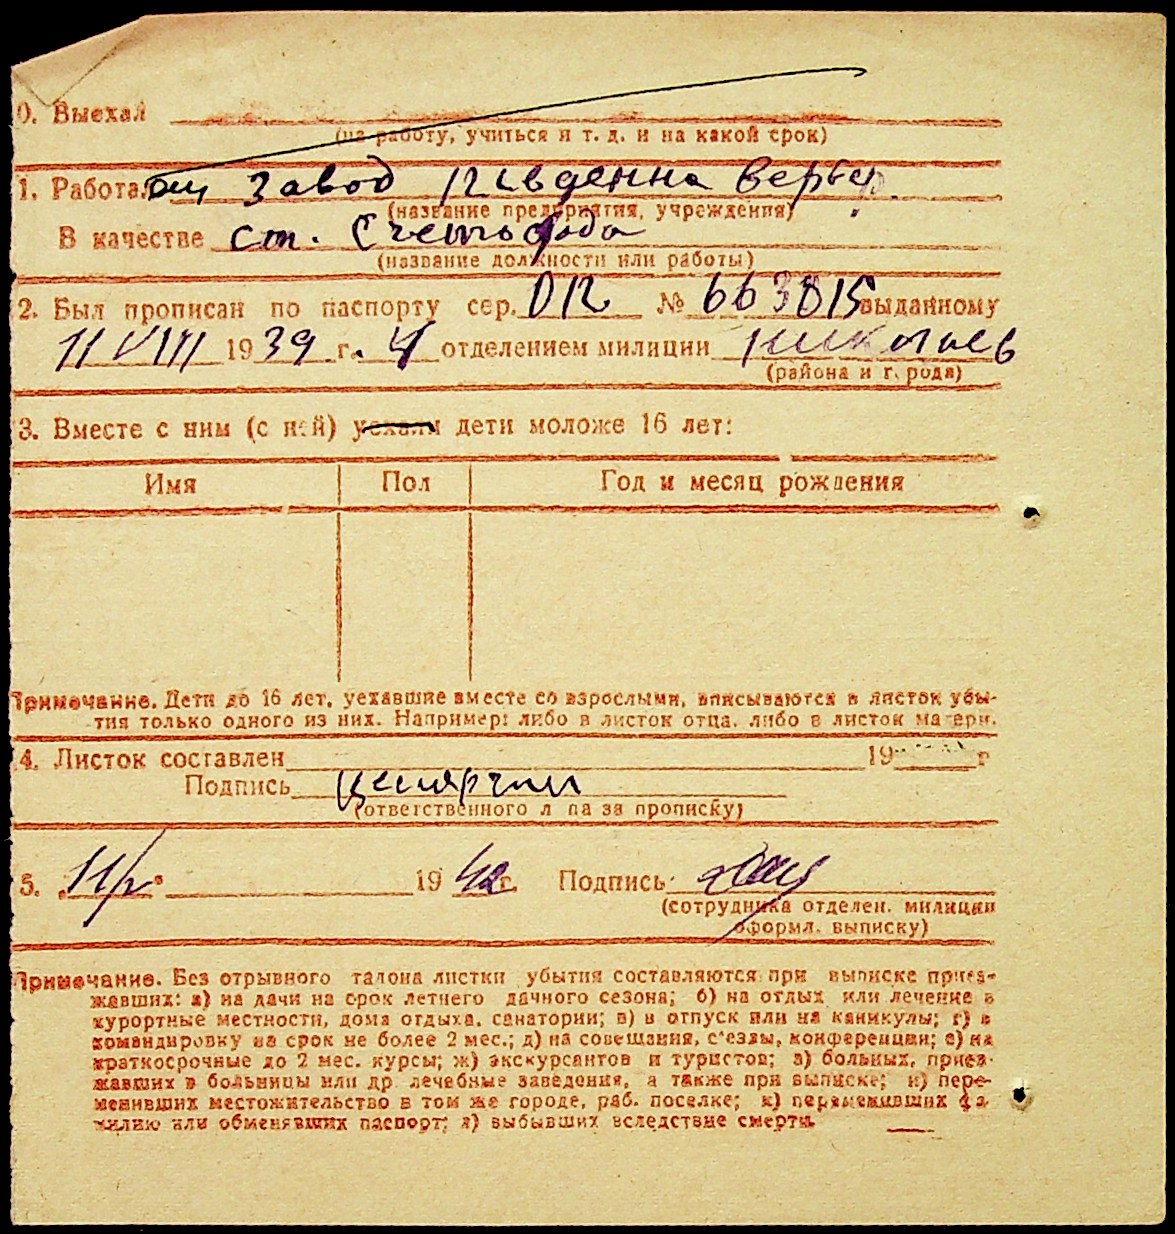 0. Выехал
(на работу, учиться и т. д. и на какой срок)
1. Работал завод Південна Верфь
(название предприятия, учреждения)
В качестве ст. Счетовода
(название должности или работы)
2. Был прописан по паспорту сер. № 663815 выданному
11 VIII 1939 г. 4 отделением милиции Николаев
(района и города)
3. Вместе с ним (с ней) уехали дети моложе 16 лет:
Имя Пол Год и месяц рождения
Примечание. Дети до 16 лет, уехавшие вместе со взрослыми, вписываются в листок убы-
тия только одного из них. Например: либо в листок отца, либо в листок матери.
4. Листок составлен 19 г
Подпись
(ответственного лица за прописку)
5. 19 г. Подпись
(сотрудника отделен. милиции
оформл. выписку)
Примечание. Без отрывного талона листки убытия составляются при выписке приез-
жавших: а) на дачи на срок летнего дачного сезона; б) на отдых или лечение в
курортные местности, дома отдыха, санатории; в) в отпуск или на каникулы; г) в
командировку на срок не более 2 мес.; д) на совещания, с'езды, конференции; е) на
краткосрочные до 2 мес. курсы; ж) экскурсантов и туристов; з) больных, приез-
жавших в больницы или др. лечебные заведения, а также при выписке; и) пере-
менивших местожительство в том же городе, раб. поселке; к) переменивших фа-
милию или обменявших паспорт; л) выбывших вследствие смерти.